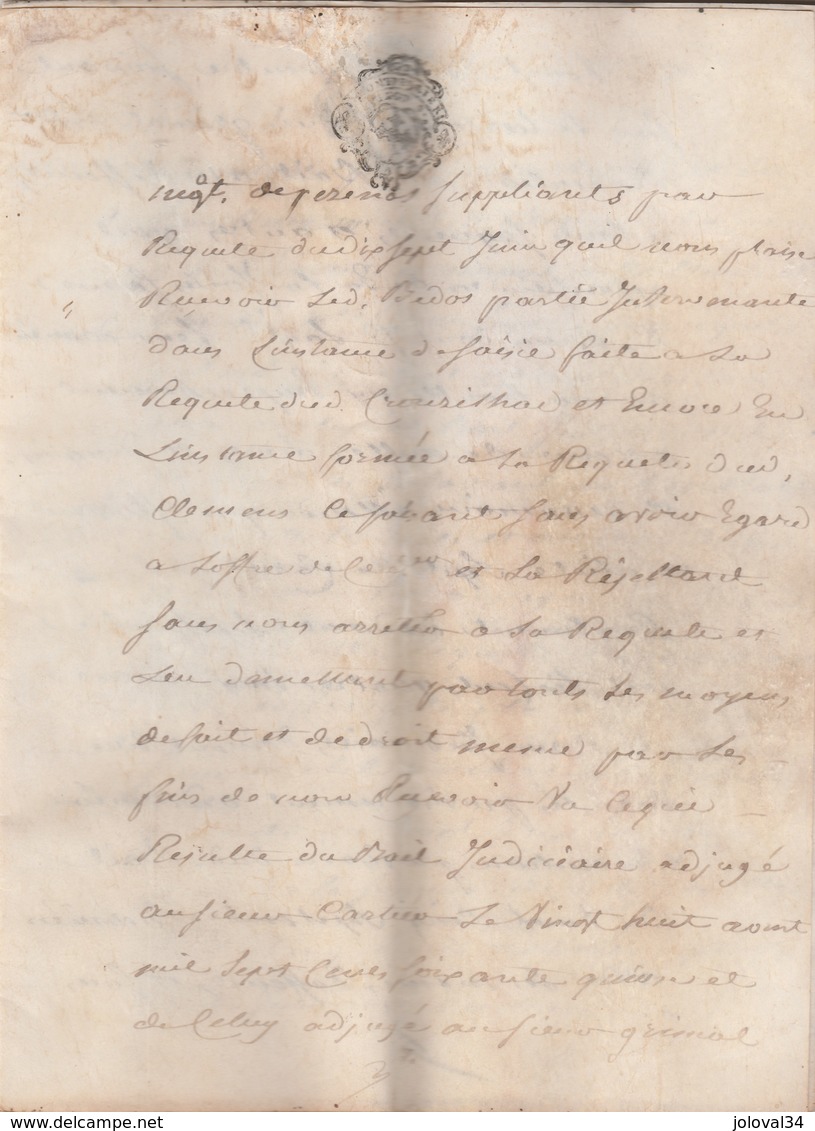 suppliants par
Requete du dix sept Juin quil nous plaise
Recevoir Led. Bedos partie Intervenante
dans L'instance de saisie faite a La
Requete dud. et Encore En
L'instance formée a La Requete dud,
Clemens Ce faisant sans avoir Egard
a Loffre de et La Rejettant
sans nous arretter a La Requete et
Len demettant par touts Les moyens
de fait et de droit meme par Les
fins de non Recevoir Vu Ce qui
Resulte du Bail Judiciaire adjugé
au sieur Cartier Le Vingt huit aout
mil Sept Cens soixante quinse et
de Celuy adjugé au sieur grimal
joloval34